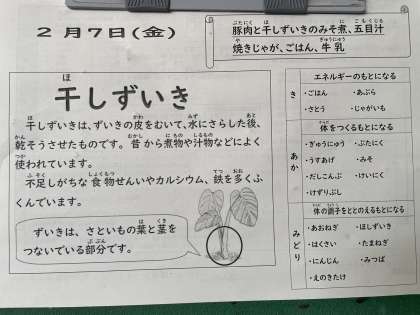 2月7日(金)
豚肉と干しずいきのみそ煮、五目汁
焼きじゃが、ごはん、牛乳
干しずいき
干しずいきは、ずいきの皮をむいて、水にさらした後、
乾そうさせたものです。昔から煮物や汁物などによく
使われています。
不足しがちな食物せんいやカルシウム、鉄を多くふ
くんでいます。
ずいきは、さといもの葉と茎を
つないでいる部分です。
き
エネルギーのもとになる
・ごはん ・あぶら
・さとう ・じゃがいも
あか
体をつくるもとになる
・ぎゅうにゅう ・ぶたにく
・うすあげ ・みそ
・だしこんぶ ・けいにく
・けずりぶし
みどり
体の調子をととのえるもとになる
・あおねぎ ・ほしずいき
・はくさい ・たまねぎ
・にんじん ・みつば
・えのきたけ